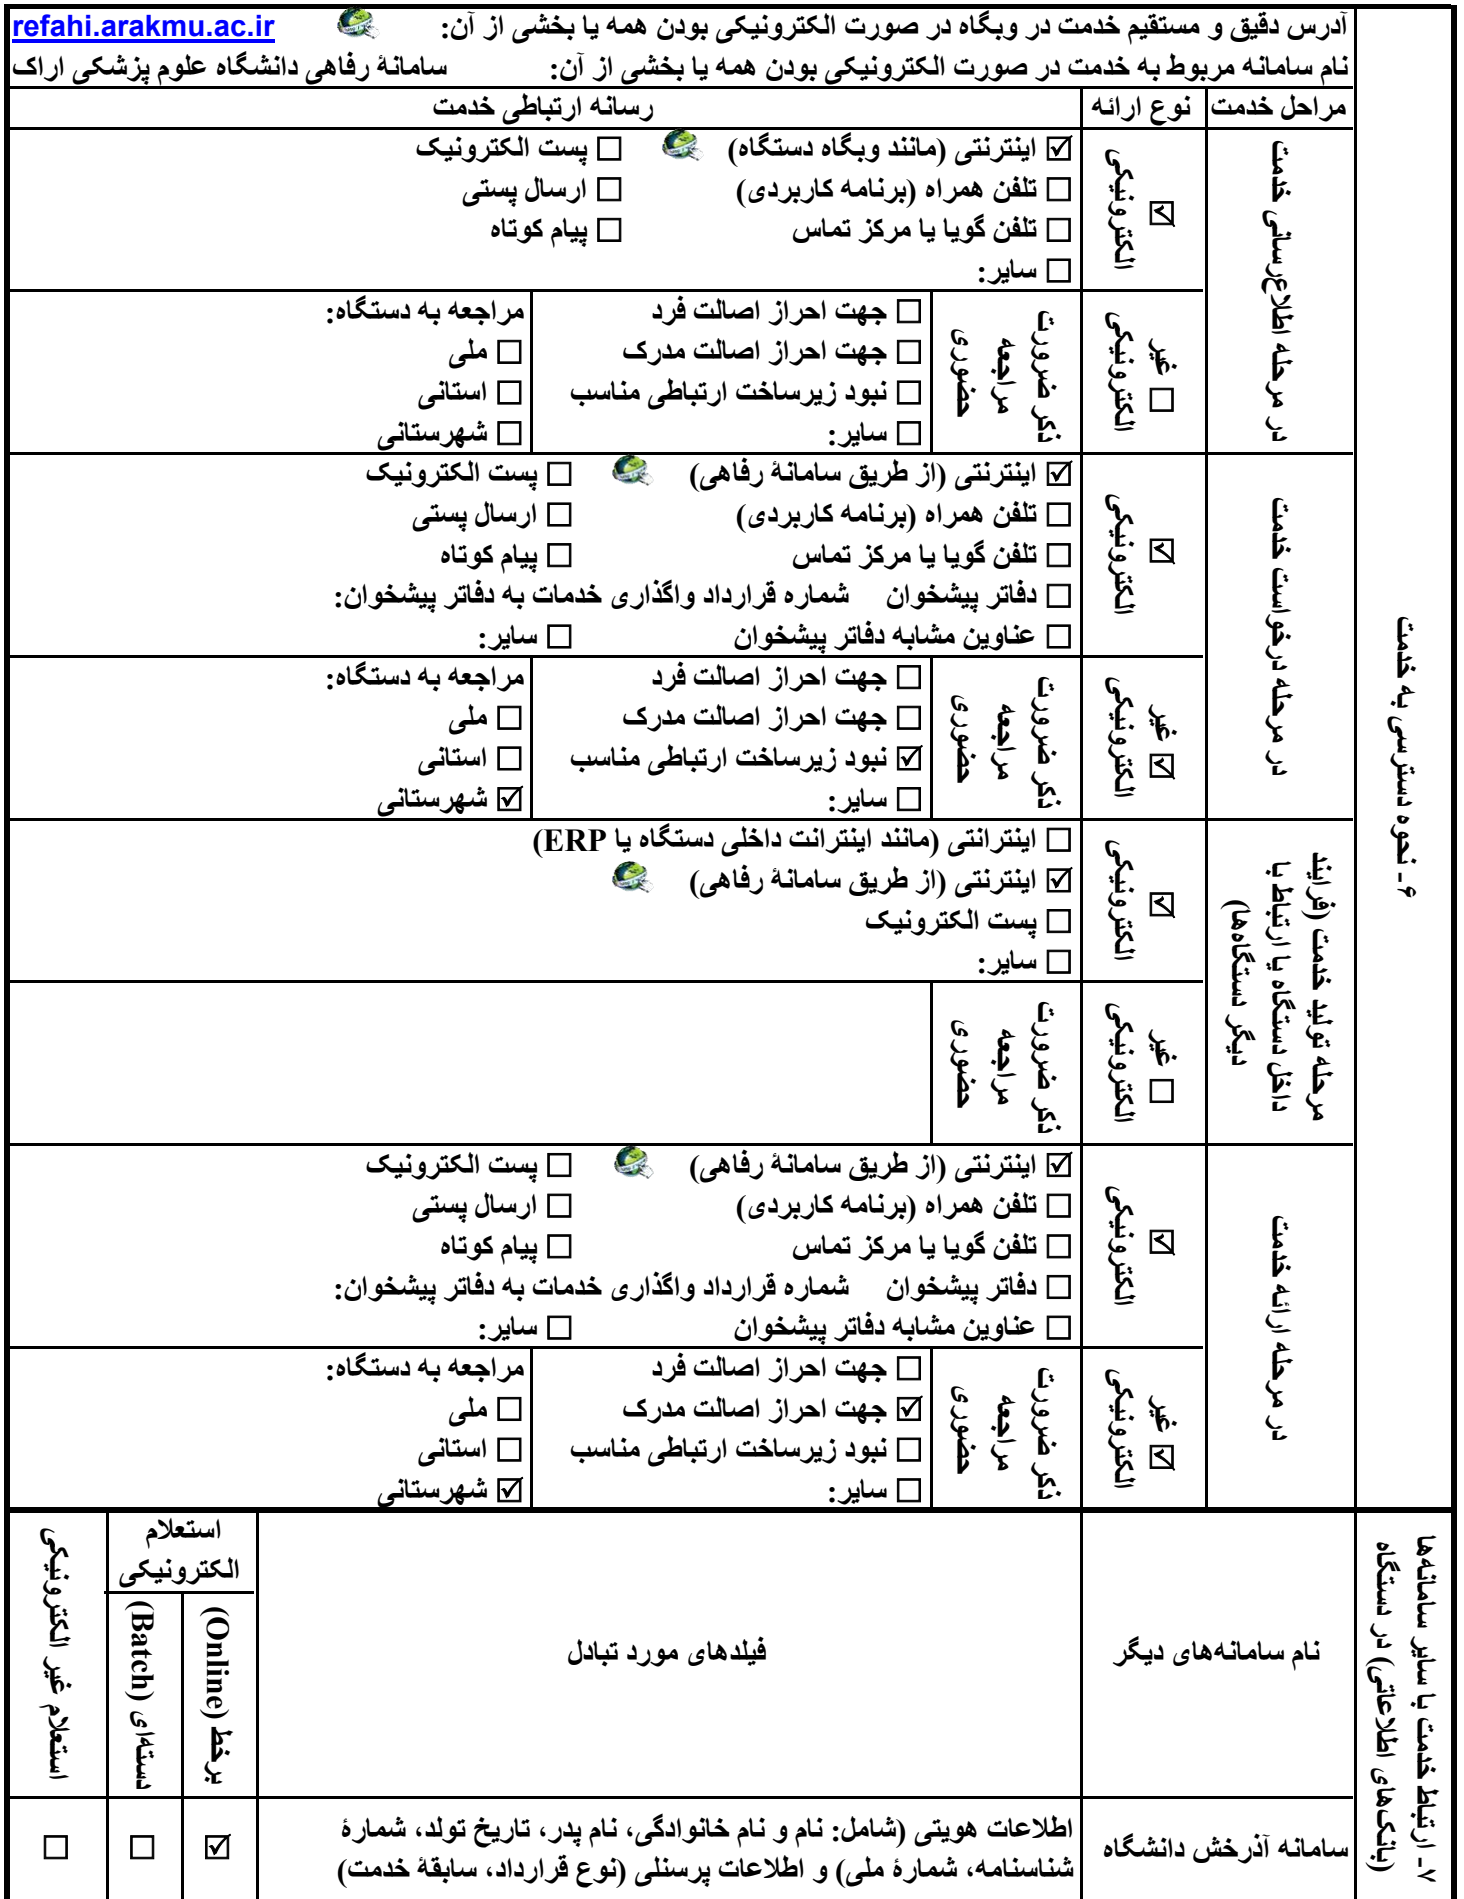 آدرس دقیق و مستقیم خدمت در وبگاه در صورت الکترونیکی بودن همه یا بخشی از آن: refahi.arakmu.ac.ir
نام سامانه مربوط به خدمت در صورت الکترونیکی بودن همه یا بخشی از آن: سامانهٔ رفاهی دانشگاه علوم پزشکی اراک
۶ـ نحوه دسترسی به خدمت
مراحل خدمت نوع ارائه رسانه ارتباطی خدمت
در مرحله اطلاع‌رسانی خدمت
☑ الکترونیکی
☑ اینترنتی (مانند وبگاه دستگاه) ☐ پست الکترونیک
☐ تلفن همراه (برنامه کاربردی) ☐ ارسال پستی
☐ تلفن گویا یا مرکز تماس ☐ پیام کوتاه
☐ سایر:
☐ غیر
الکترونیکی
ذکر ضرورت
مراجعه
حضوری
☐ جهت احراز اصالت فرد مراجعه به دستگاه:
☐ جهت احراز اصالت مدرک ☐ ملی
☐ نبود زیرساخت ارتباطی مناسب ☐ استانی
☐ سایر: ☐ شهرستانی
در مرحله درخواست خدمت
☑ الکترونیکی
☑ اینترنتی (از طریق سامانهٔ رفاهی) ☐ پست الکترونیک
☐ تلفن همراه (برنامه کاربردی) ☐ ارسال پستی
☐ تلفن گویا یا مرکز تماس ☐ پیام کوتاه
☐ دفاتر پیشخوان شماره قرارداد واگذاری خدمات به دفاتر پیشخوان:
☐ عناوین مشابه دفاتر پیشخوان ☐ سایر:
☑ غیر
الکترونیکی
ذکر ضرورت
مراجعه
حضوری
☐ جهت احراز اصالت فرد مراجعه به دستگاه:
☐ جهت احراز اصالت مدرک ☐ ملی
☑ نبود زیرساخت ارتباطی مناسب ☐ استانی
☐ سایر: ☑ شهرستانی
مرحله تولید خدمت (فرایند
داخل دستگاه یا ارتباط با
دیگر دستگاه‌ها)
☑ الکترونیکی
☐ اینترانتی (مانند اینترانت داخلی دستگاه یا ERP)
☑ اینترنتی (از طریق سامانهٔ رفاهی)
☐ پست الکترونیک
☐ سایر:
☐ غیر
الکترونیکی
ذکر ضرورت
مراجعه
حضوری
در مرحله ارائه خدمت
☑ الکترونیکی
☑ اینترنتی (از طریق سامانهٔ رفاهی) ☐ پست الکترونیک
☐ تلفن همراه (برنامه کاربردی) ☐ ارسال پستی
☐ تلفن گویا یا مرکز تماس ☐ پیام کوتاه
☐ دفاتر پیشخوان شماره قرارداد واگذاری خدمات به دفاتر پیشخوان:
☐ عناوین مشابه دفاتر پیشخوان ☐ سایر:
☑ غیر
الکترونیکی
ذکر ضرورت
مراجعه
حضوری
☐ جهت احراز اصالت فرد مراجعه به دستگاه:
☑ جهت احراز اصالت مدرک ☐ ملی
☐ نبود زیرساخت ارتباطی مناسب ☐ استانی
☐ سایر: ☑ شهرستانی
۷ـ ارتباط خدمت با سایر سامانه‌ها
(بانک‌های اطلاعاتی) در دستگاه
نام سامانه‌های دیگر فیلدهای مورد تبادل
استعلام
الکترونیکی
برخط (Online)
دسته‌ای (Batch)
استعلام غیر الکترونیکی
سامانه آذرخش دانشگاه
اطلاعات هویتی (شامل: نام و نام خانوادگی، نام پدر، تاریخ تولد، شمارهٔ
شناسنامه، شمارهٔ ملی) و اطلاعات پرسنلی (نوع قرارداد، سابقهٔ خدمت)
☑ ☐ ☐